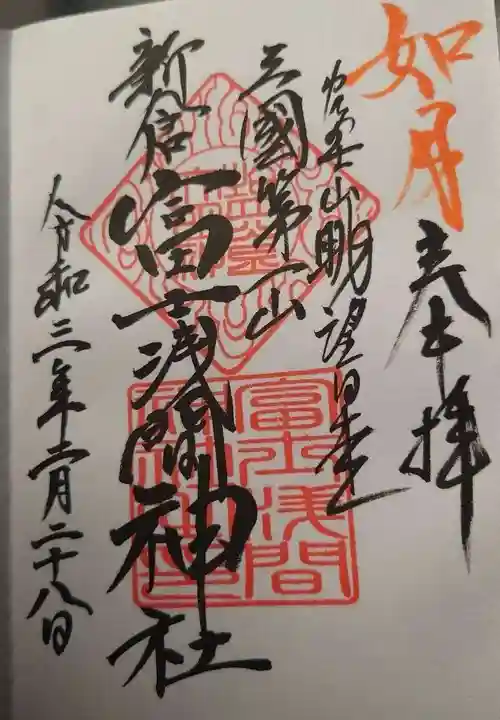 如月
奉拝
山眺望日本一
三國第一山
新倉富士浅間神社
令和三年二月二十八日
富士浅間
神社